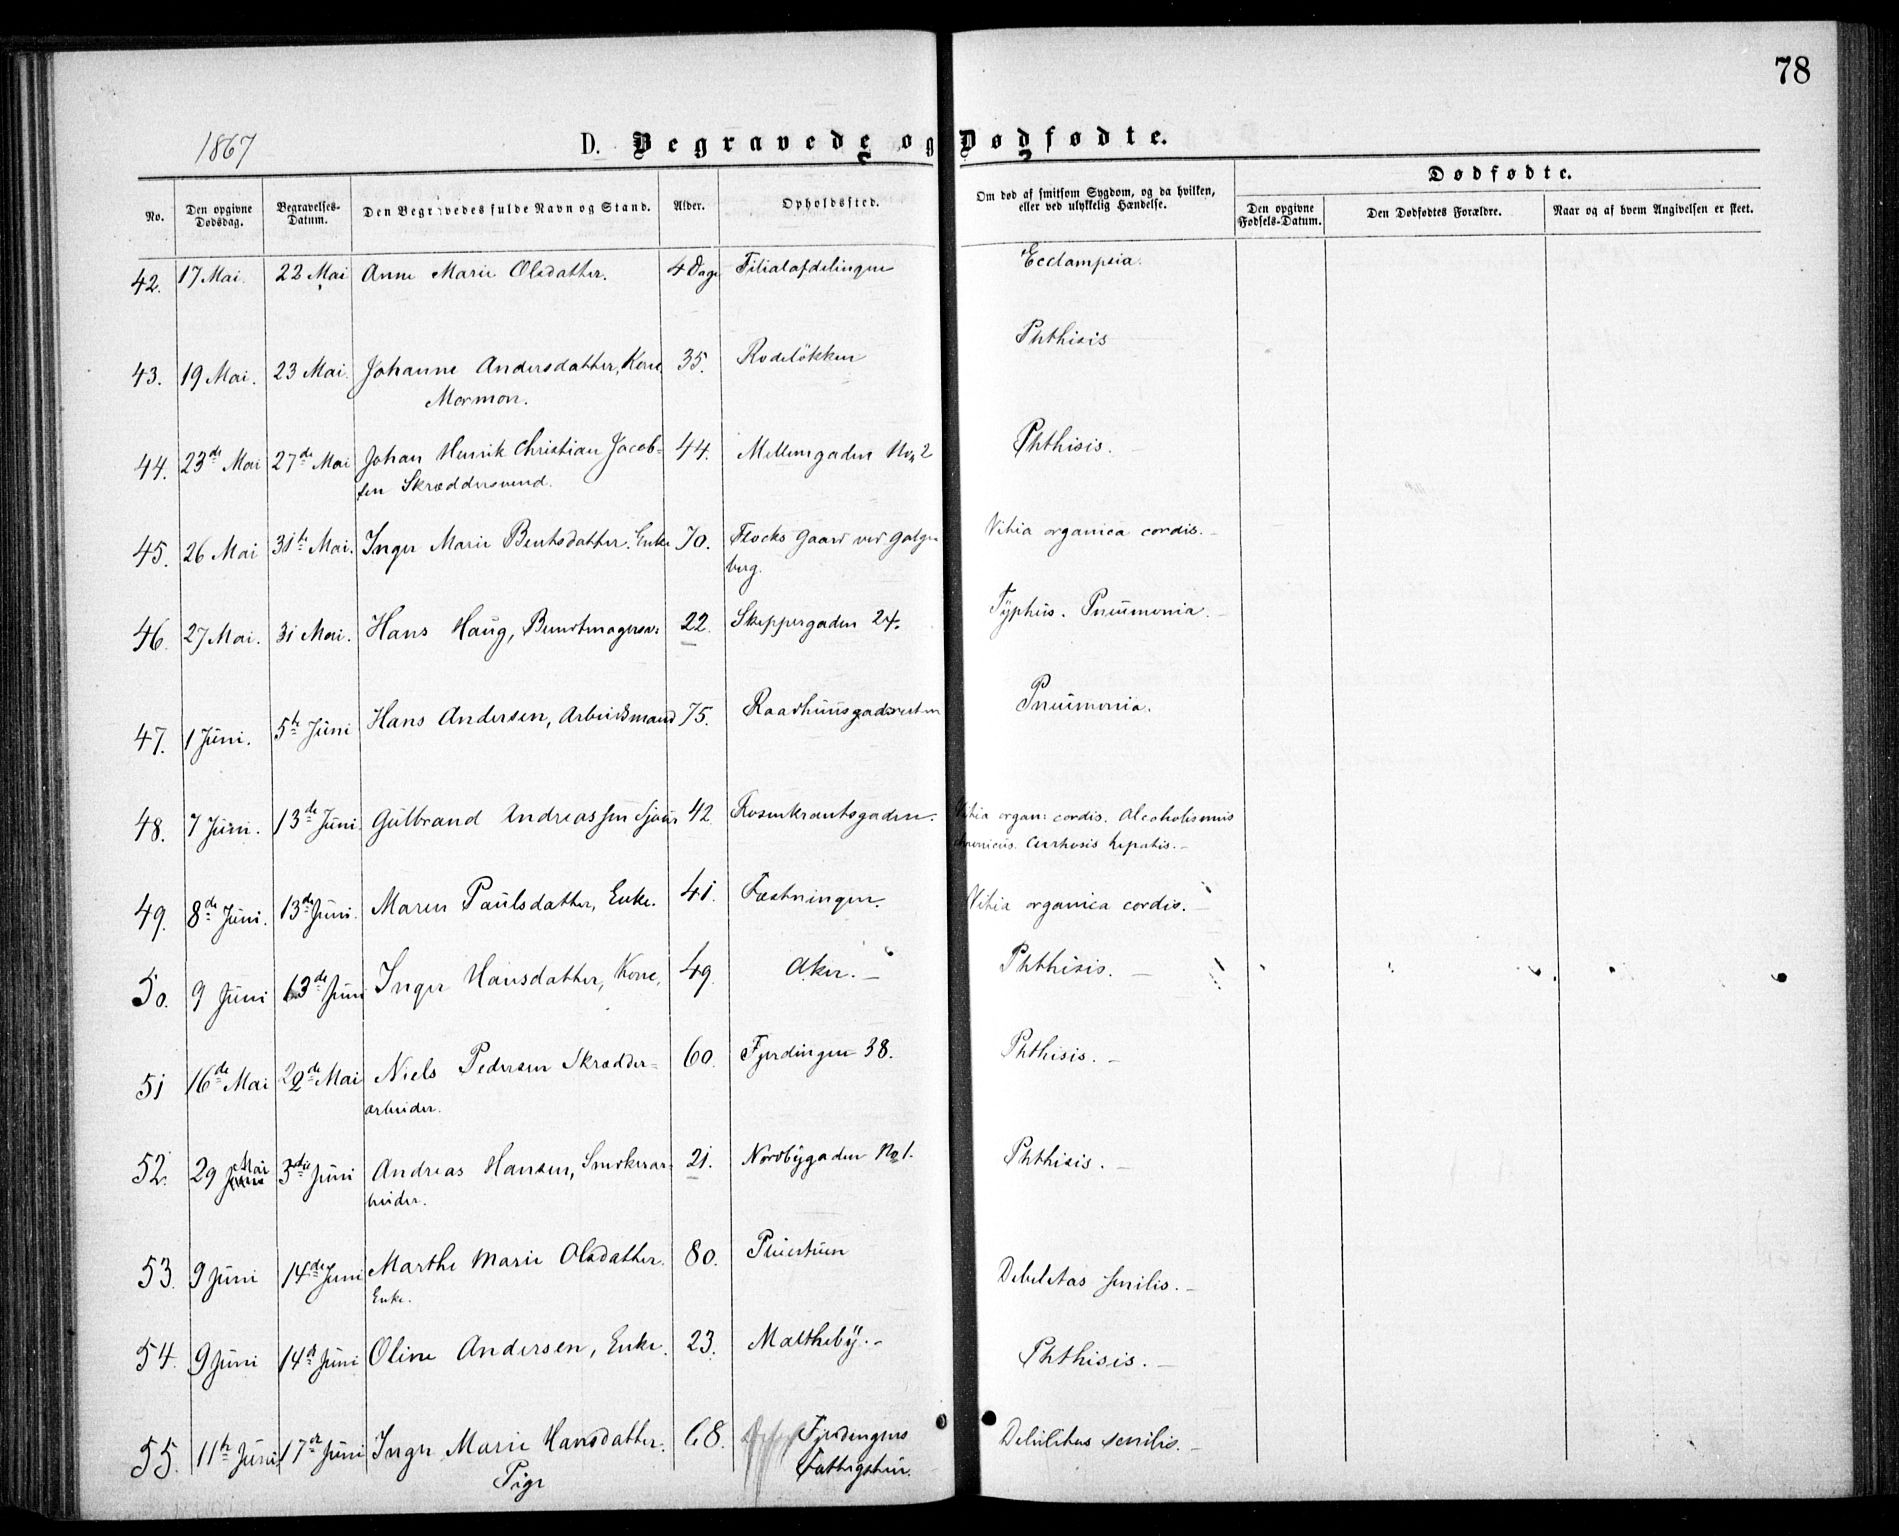 78
1867
D. Begravede og Dødfødte.
No. Den opgivne Dødsdag. Begravelses-Datum. Den Begravedes fulde Navn og Stand. Alder. Opholdssted. Om død af smitsom Sygdom, og da hvilken, eller ved ulykkelig Hændelse. Dødfødte.
Den opgivne Fødsels-Datum. Den Dødfødtes Forældre. Naar og af hvem Angivelsen er skeet.
42. 17 Mai. 22 Mai Anne Marie Olsdatter. 4 Dage Filialafdelingen Ecclampsia.
43. 19 Mai. 23 Mai. Johanne Andersdatter, Kone, 35. Rodeløkken Phthisis
Mormon.
44. 23de Mai 27de Mai Johan Henrik Christian Jacob- 44. Mellemgaden No 2 Phthisis.
sen Skræddersvend.
45. 26 Mai 31te Mai. Inger Marie Berntsdatter. Enke 70. Flocks Gaard ved Galge- Vitia organica cordis.
berg.
46. 27 Mai. 31 Mai. Hans Haug, Buntmagersv: 22. Skippergaden 24. Typhus. Pneumonia.
47. 1 Juni. 5te Juni Hans Andersen, Arbeidsmand 75. Raadhuusgadens Pneumonia.
48. 7 Juni. 13de Juni. Gulbrand Andreassen Sjouer 42. Rosenkrantsgaden. Vitia organ: cordis. Alcoholismus
chronicus. Cirrhosis hepatis.
49. 8de Juni. 13de Juni. Maren Paulsdatter, Enke. 41. Fæstningen. Vitia organica cordis.
50. 9 Juni 13de Juni Inger Hansdatter, Kone, 49. Aker. Phthisis.
51 16de Mai 22de Mai Niels Pedersen Skrædder- 60. Fjerdingen 38. Phthisis.
arbeider.
52. 29 Mai 3die Juni Andreas Hansen, Smokerar- 21. Nordbygaden No 1. Phthisis.
beider.
53. 9 Juni 14de Juni Marthe Marie Olsdatter. 80. Debilitas senilis.
Enke.
54. 9 Juni 14de Juni Oline Andersen, Enke. 23. Maltheby. Phthisis.
55. 11te Juni 17de Juni Inger Marie Hansdatter. 68. Fjerdingens Debilitas senilis.
Pige Fattighuus.